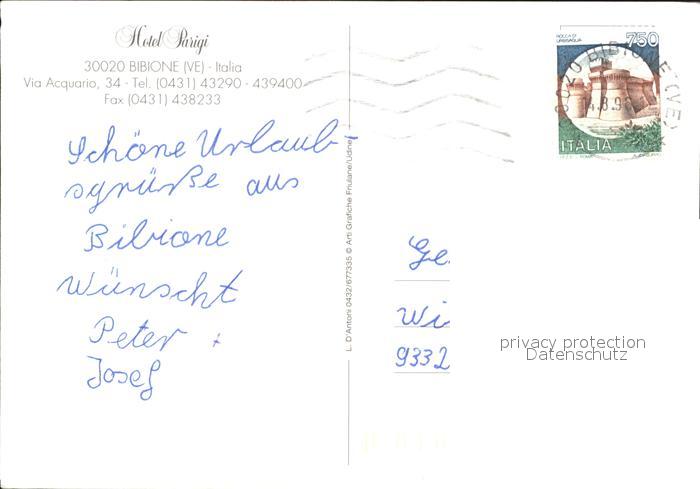 Hotel Parigi
30020 BIBIONE (VE) - Italia
Via Acquario, 34 - Tel. (0431) 43290 - 439400
Fax (0431) 438233
Schöne Urlaub-
sgrüße aus
Bibione
Wünscht
Peter +
Josef
L. D'Antoni 0432/677335 © Arti Grafiche Friulane/Udine
ROCCA DI
URBISAGLIA
750
ITALIA
30020 BIBIONE (VE)
Ge
Wi
9332
privacy protection
Datenschutz